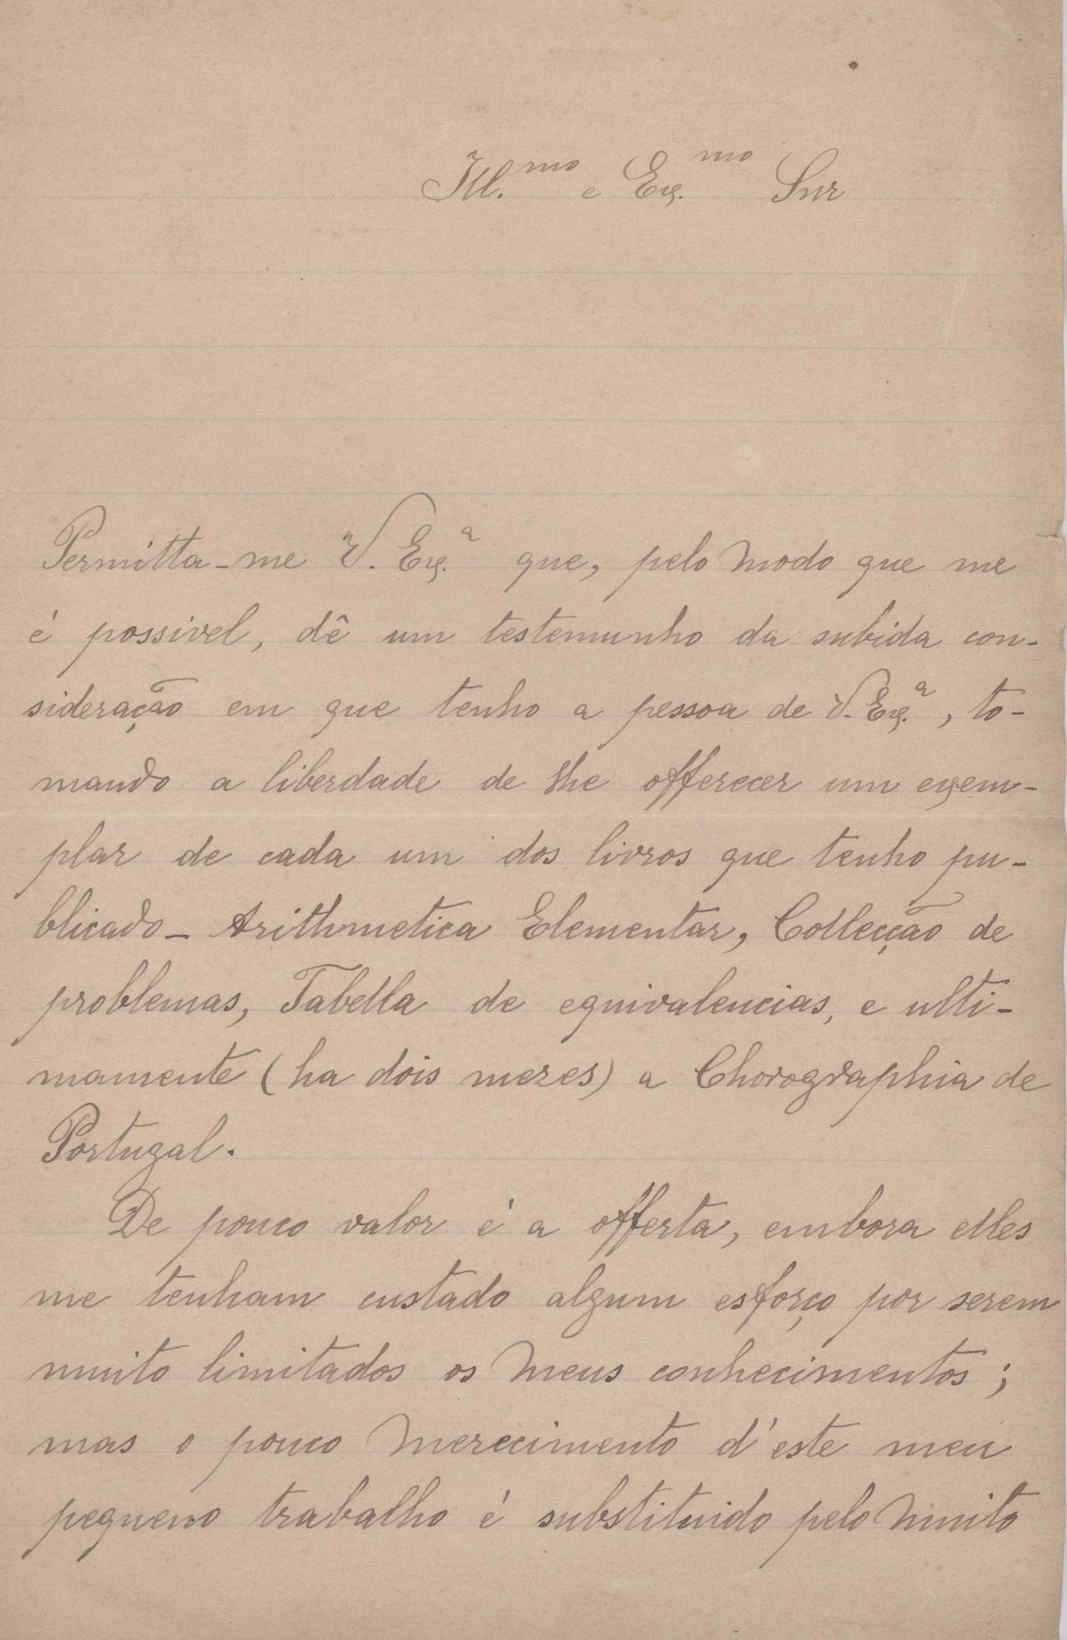 Ill.mo e Ex.mo Snr
Permitta-me V. Ex.a que, pelo modo que me
é possivel, dê um testemunho da subida con-
sideração em que tenho a pessoa de V. Ex.a, to-
mando a liberdade de lhe offerecer um exem-
plar de cada um dos livros que tenho pu-
blicado - Arithmetica Elementar, Collecção de
problemas, Tabella de equivalencias, e ulti-
mamente (ha dois mezes) a Chorographia de
Portugal.
De pouco valor é a offerta, embora elles
me tenham custado algum esforço por serem
muito limitados os meus conhecimentos;
mas o pouco merecimento d'este meu
pequeno trabalho é substituido pelo muito